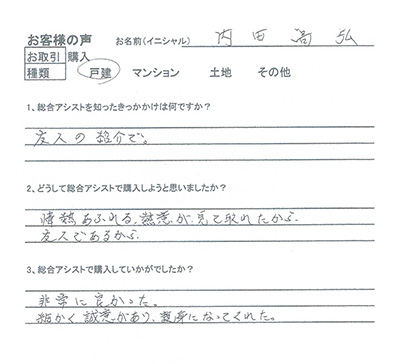 お客様の声 お名前(イニシャル) 内田高弘
お取引 購入
種類 戸建 マンション 土地 その他
1、総合アシストを知ったきっかかけは何ですか?
友人の紹介で。
2、どうして総合アシストで購入しようと思いましたか?
情熱あふれる、熱意が、見て取れたから
友人であるから
3、総合アシストで購入していかがでしたか?
非常に良かった。
細かく誠意があり、親身になってくれた。